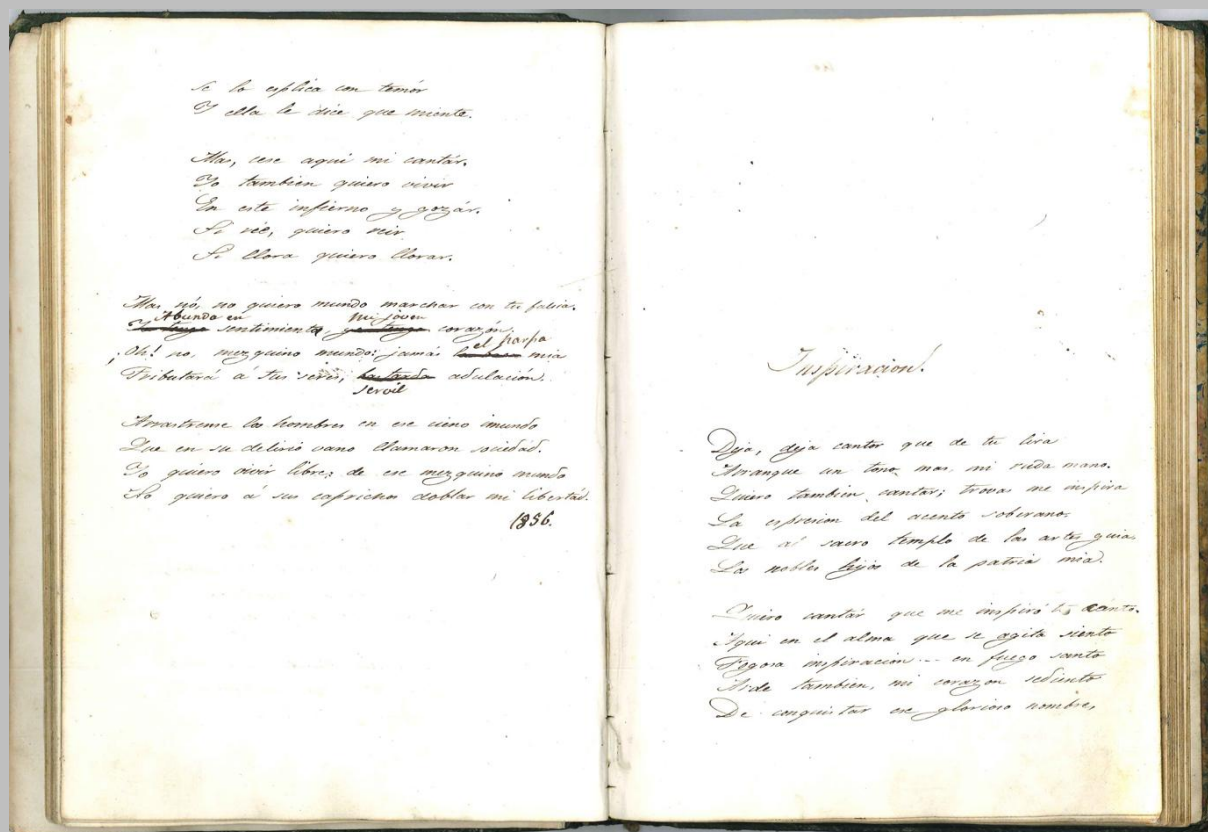 Se lo esplica con temór
Y ella le dice que miente.
Mas, cese aqui mi cantár.
Yo tambien quiero vivir
En este infierno y gozár.
Si rie, quiero reir
Si llora quiero llorar.
Mas nó, no quiero mundo marchar con tu falsia.
Abundo en mi joven
Yo tengo sentimiento, y tengo corazón.
el harpa
¡Oh! no, mezquino mundo: jamás mia
Tributará á tus seres, bastarda adulación.
servil
Arrastrense los hombres en ese cieno inmundo
Que en su delirio vano llamaron sociedad.
Yo quiero vivir libre; de ese mezquino mundo
No quiero á sus caprichos doblar mi libertád.
1856.
Inspiracion!
Deja, deja cantor que de tu lira
Arranque un tono mas, mi ruda mano.
Quiero tambien cantar; trovas me inspira
La espresion del acento soberano.
Que al sacro templo de las artes guia
Los nobles hijos de la patria mia.
Quiero cantár que me inspiró tu canto.
Aqui en el alma que se agita siento
Fogosa inspiracion... en fuego santo
Arde tambien, mi corazon sediento
De conquistar ese glorioso nombre,